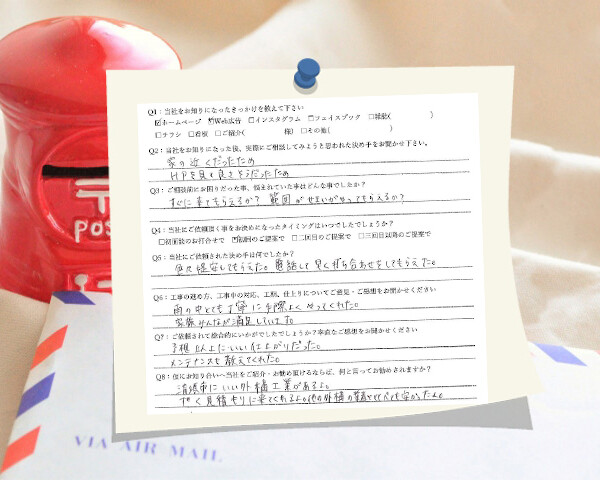 Q1：当社をお知りになったきっかけを教えて下さい
☑ホームページ ☑Web広告 □インスタグラム □フェイスブック □雑誌( )
□チラシ □看板 □ご紹介( 様) □その他( )
Q2：当社をお知りになった後、実際にご相談してみようと思われた決め手をお聞かせ下さい。
家の近くだったため
HPを見て良さそうだったため
Q3：ご相談前にお困りだった事、悩まれていた事はどんな事でしたか？
すぐに来てもらえるか？ 範囲がせまいがやってもらえるか？
Q4：当社にご依頼頂く事をお決めになったタイミングはいつでしたでしょうか？
□初回面のお打合せで ☑初回のご提案で □二回目のご提案で □三回目以降のご提案で
Q5：当社にご依頼された決め手は何でしたか？
色々提案してもらえた。電話して早く打ち合わせをしてもらえた。
Q6：工事の進め方、工事中の対応、工期、仕上りについてご意見・ご感想をお聞かせください
雨の中とても丁寧に手際よくやってくれた。
家族みんなが満足しています。
Q7：ご依頼されて総合的にいかがでしたでしょうか？率直なご感想をお聞かせください
予想以上にいい仕上がりだった。
メンテナンスも教えてくれた。
Q8：仮にお知り合いへ当社をご紹介・お勧め頂けるならば、何と言ってお勧めされますか？
清須市にいい外構工業があるよ。
見積もりに来てくれるよ。他の外構の業者さんよりも安かったよ。
POS
VIA AIR MAIL